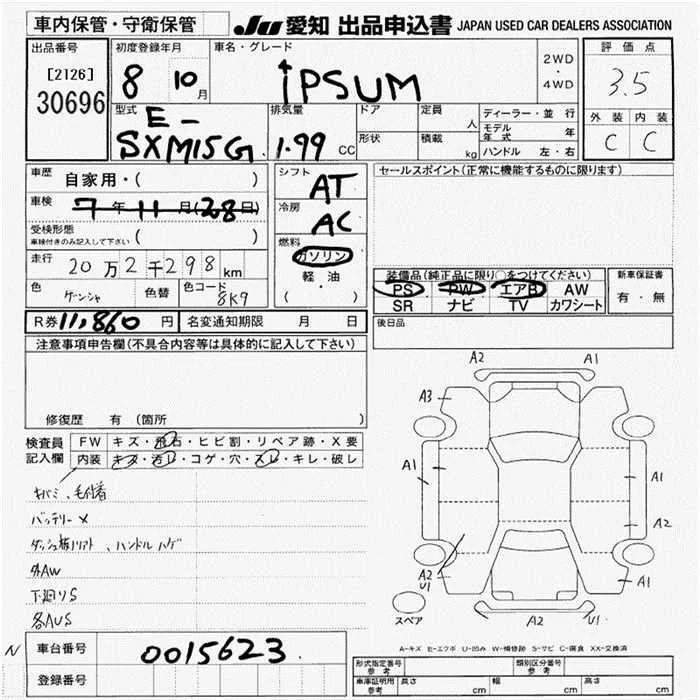 車内保管・守衛保管
JU 愛知 出品申込書 JAPAN USED CAR DEALERS ASSOCIATION
出品番号
[2126]
30696
初度登録年月
8 10 月
車名・グレード
iPSUM
2WD
・
4WD
評価点
3.5
外装 内装
C C
型式
E-
SXM15G
排気量
1.99 CC
ドア
形状
定員
人
積載
kg
ディーラー・並行
モデル年式 年
ハンドル 左・右
車歴
自家用・( )
車検
7年11月(28日)
受検形態
車検付きのみ記入して下さい ( )
走行
20万2千298km
色
色替
色コード
8K9
シフト
AT
冷房
AC
燃料
ガソリン
軽・油
・
( )
セールスポイント(正常に機能するものに限ります)
装備品(純正品に限り○をつけてください)
PS PW エアB AW
SR ナビ TV カワシート
新車保証書
有・無
R券 11,860 円
名変通知期限 月 日
後日品
注意事項申告欄(不具合内容等は具体的に記入して下さい)
修復歴 有 (箇所 )
検査員
記入欄
FW キズ・飛石・ヒビ割・リペア跡・X要
内装 キズ・汚レ・コゲ・穴・スレ・キレ・破レ
キバミ、毛付着
バッテリー×
ハンドルハゲ
外AW
下廻りS
各AUS
A2 A1
A3
A1 A1
A2
A2
U1
A1
A2 U1
スペア
A-キズ E-エクボ U-凹み W-補修跡 S-サビ C-腐食 XX-交換済
N
車台番号
0015623
登録番号
形式指定番号
参考
類別区分番号
参考
車庫証明用
参考
長さ cm 幅 cm 高さ cm